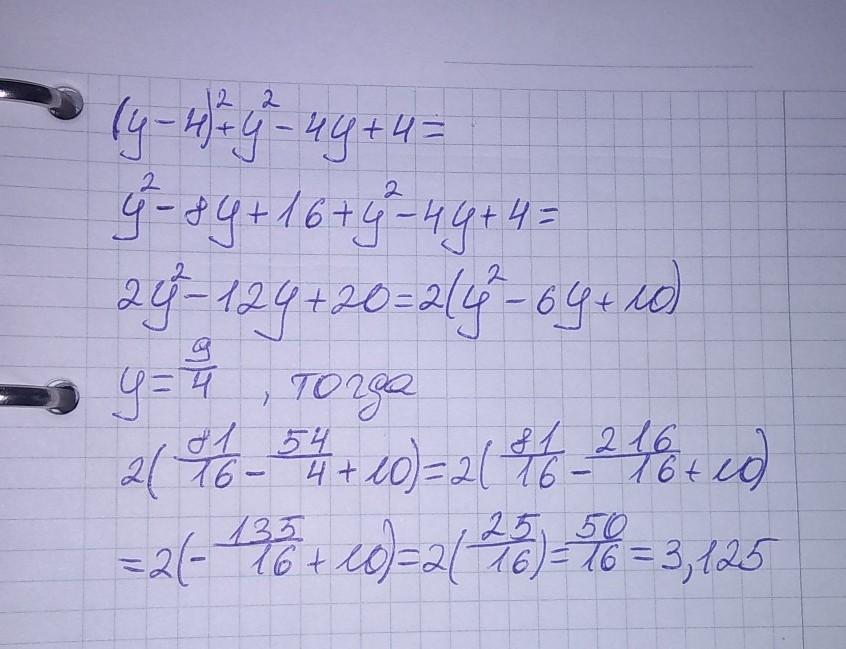 (y-4)²+y²-4y+4=
y²-8y+16+y²-4y+4=
2y²-12y+20=2(y²-6y+10)
y=9/4, тогда
2(81/16-54/4+10)=2(81/16-216/16+10)
=2(-135/16+10)=2(25/16)=50/16=3,125